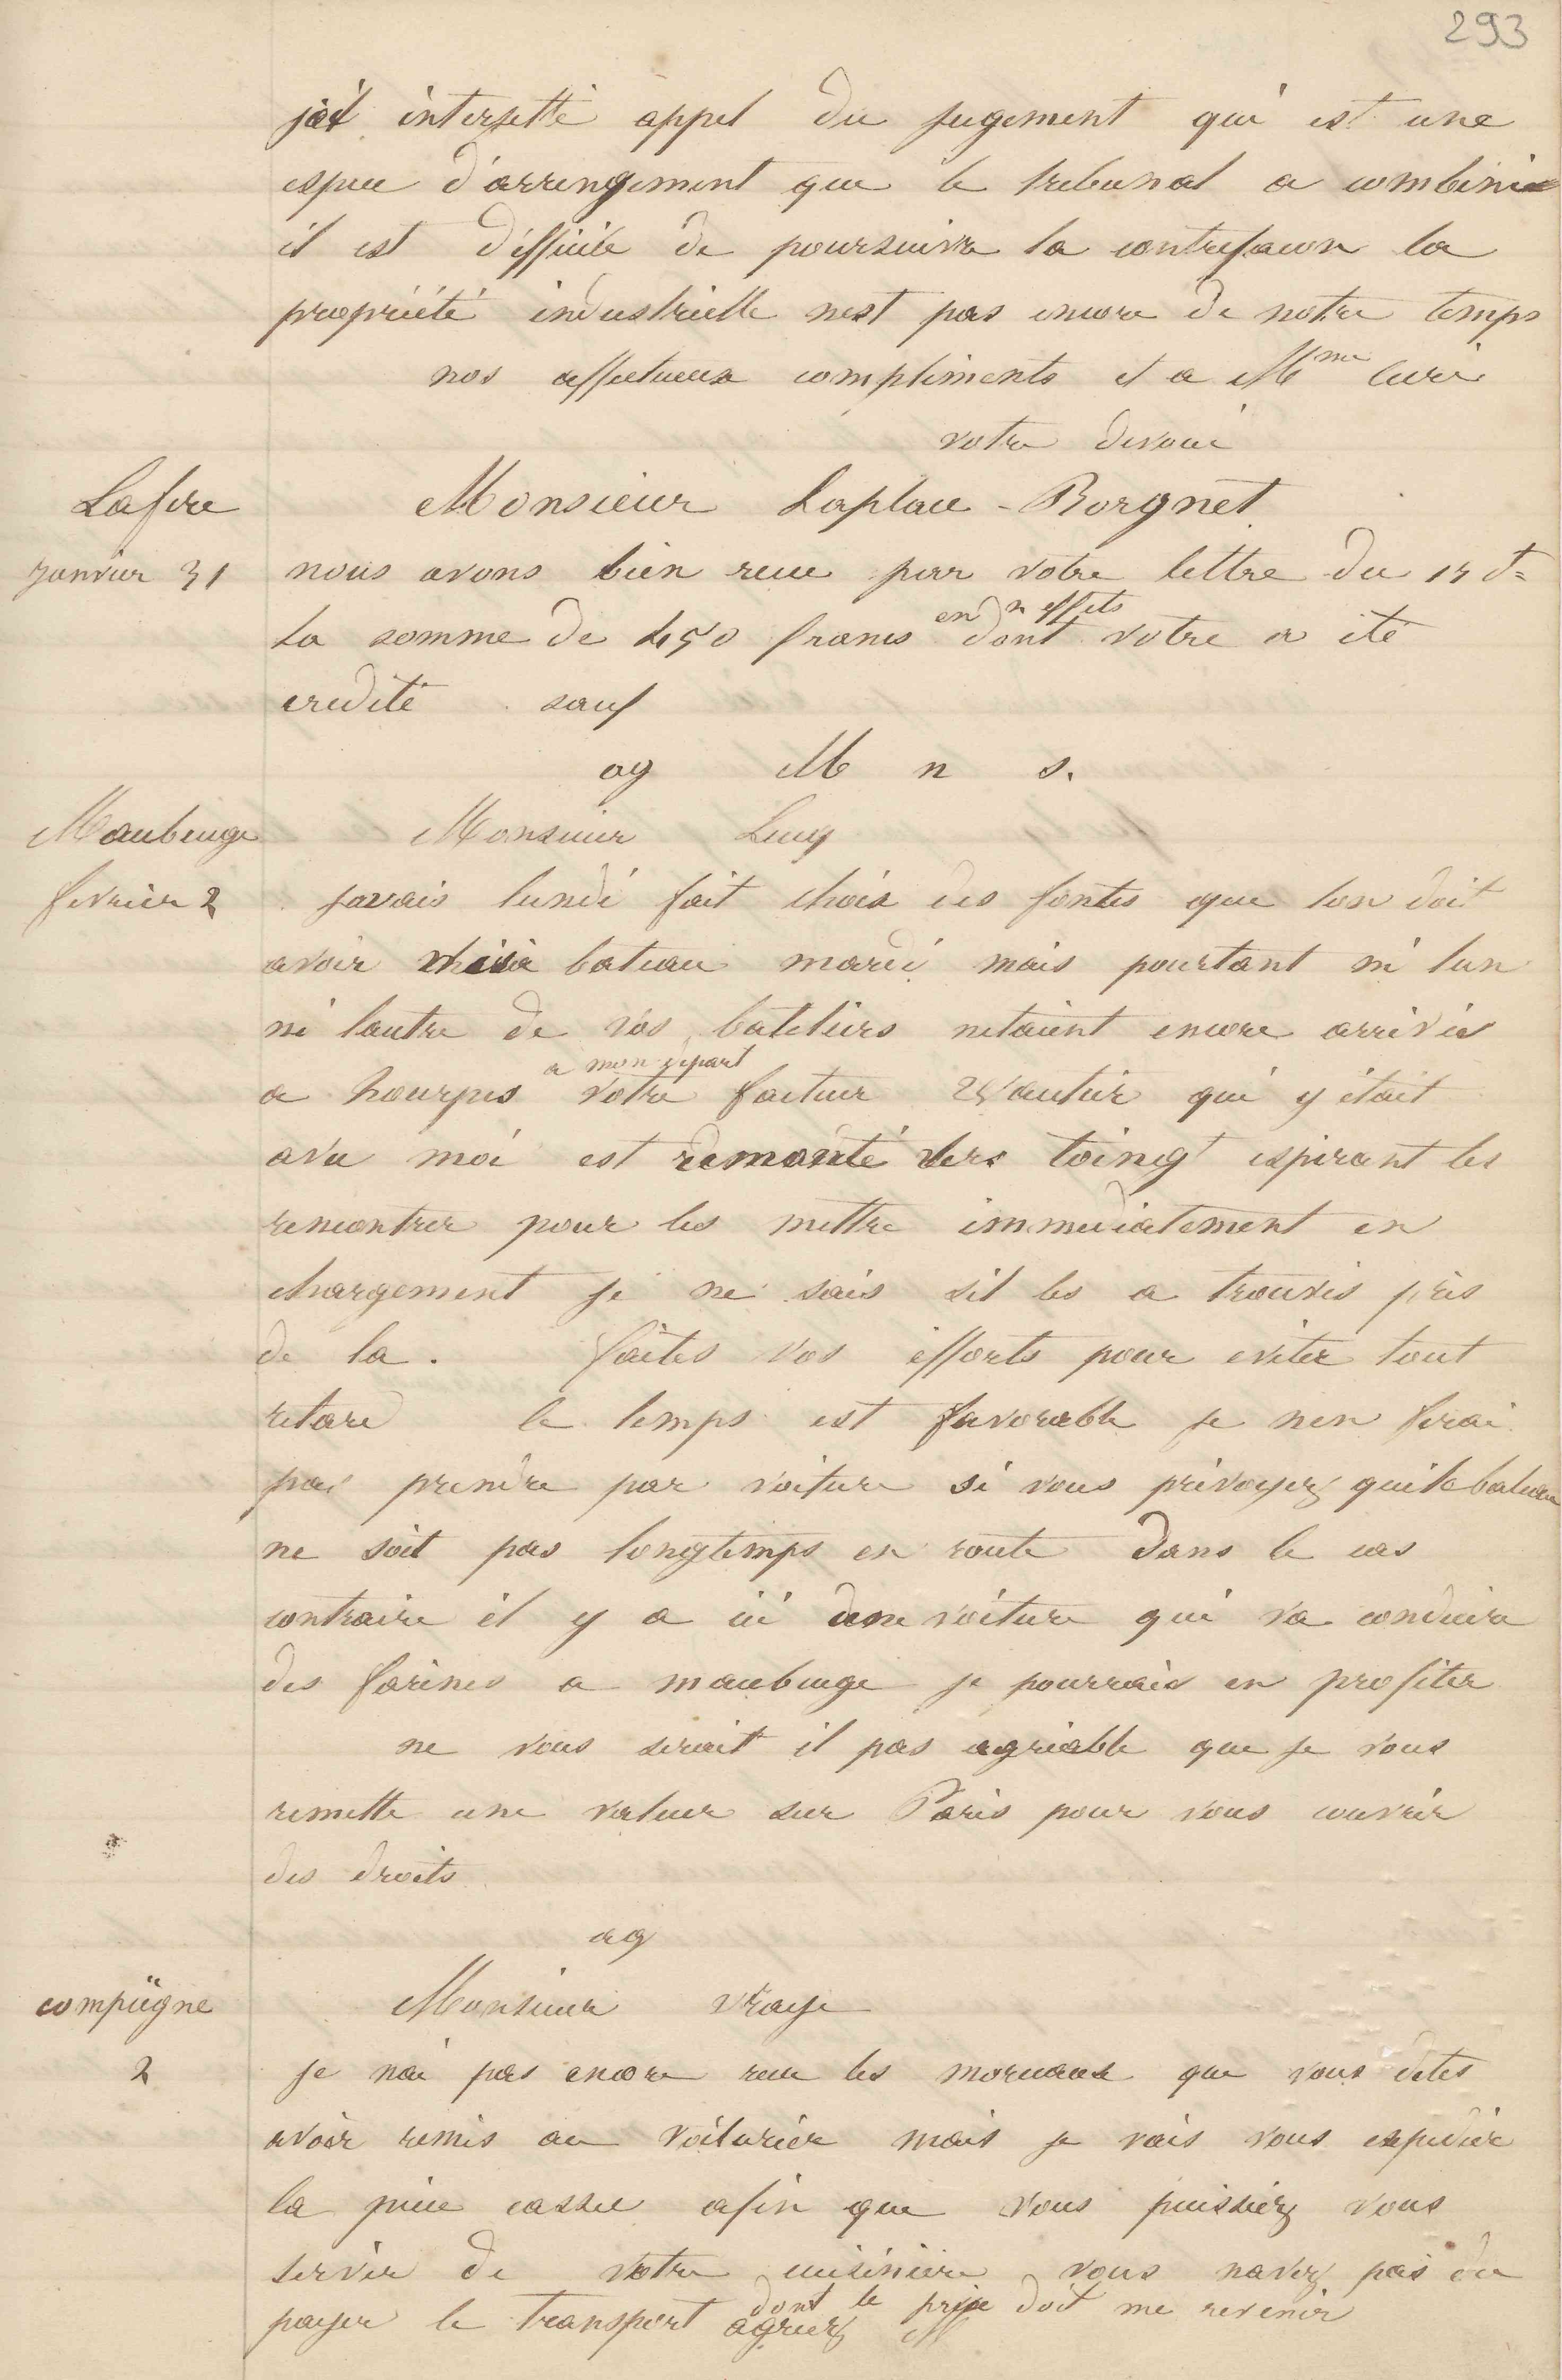 293
jai interjetté appel du jugement qui est une
espece d'arrengement que le tribunal a combiné
il est difficile de poursuivre la contrefacon la
propriété industrielle nest pas encore de notre temps
nos affectueux compliments et a Mme
votre devoué
Lafere
Monsieur Laplace-Borgnet
janvier 31
nous avons bien recu par votre lettre du 15 dt
en n effets
la somme de 450 francs dont votre a été
credité sauf
ag M n s.
Maubeuge
Monsieur Lucq
fevrier 2
javais lundi fait choix des fontes que lon doit
avoir bateau mardi mais pourtant ni lun
ni lautre de vos bateliers netaient encore arrivés
a mon depart
a hourpes votre facteur Wautier qui y était
avec moi est remonté vers esperant les
rencontrer pour les mettre immediatement en
chargement je ne sais sil les a trouvés près
de la. faites vos efforts pour eviter tout
retard le temps est favorable je nen ferai
pas prendre par voiture si vous prévoyez que le bateau
ne soit pas longtemps en route dans le cas
contraire il y a ici une voiture qui va conduire
des farines a maubeuge je pourrais en profiter
ne vous serait il pas agréable que je vous
remette une valeur sur Paris pour vous couvrir
des droits
ag
compiègne
Monsieur Vraye
2
je nai pas encore recu les morceaux que vous dites
avoir remis au voiturier mais je vais vous expedier
la piece cassee afin que vous puissiez vous
servir de votre cuisiniere vous navez pas du
dont le prix doit me revenir
payer le transport agreez M